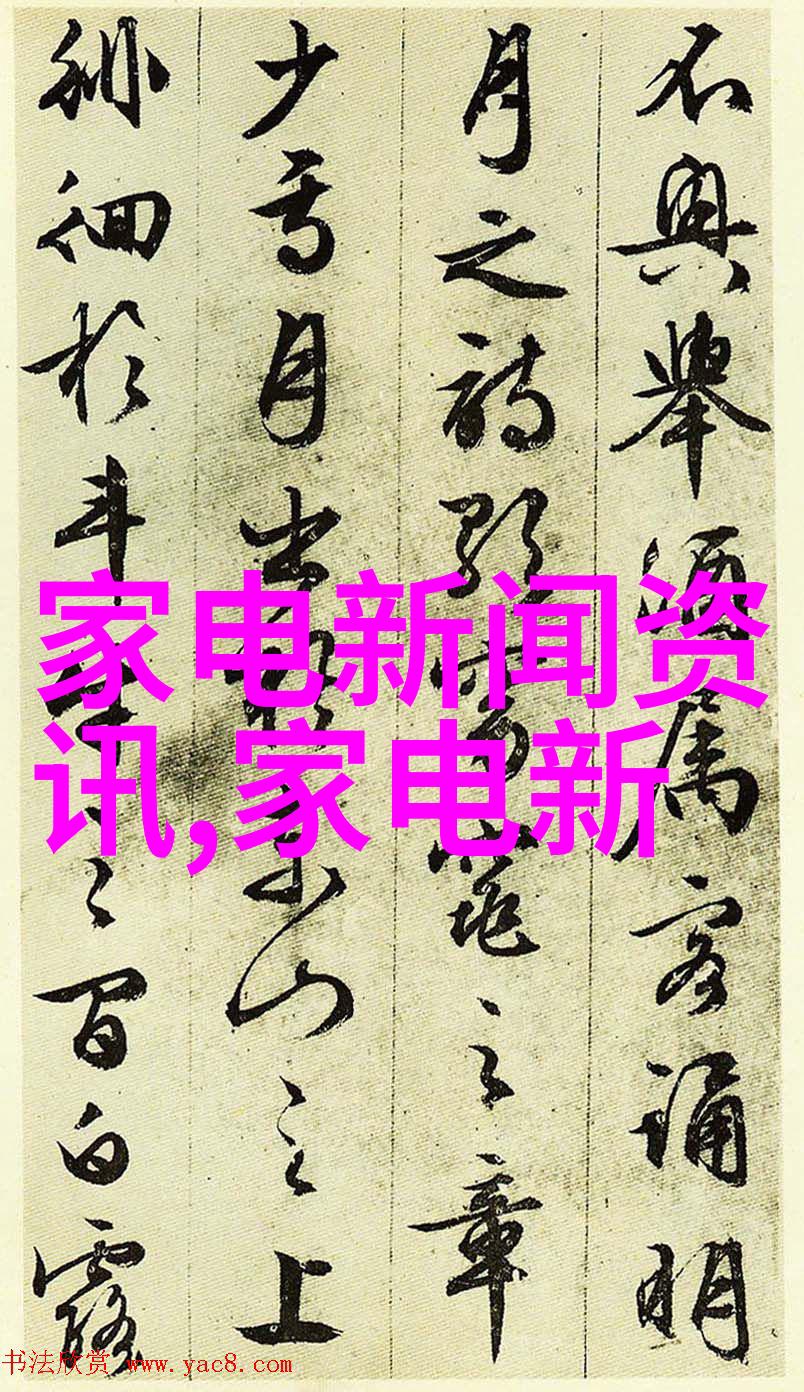 不興舉酒属客誦明
月之詩歌窈窕之章
少焉月出於東山之上
徘徊於斗牛之間白露
家电新闻资
讯,家电新
书法欣赏 www.yac8.com